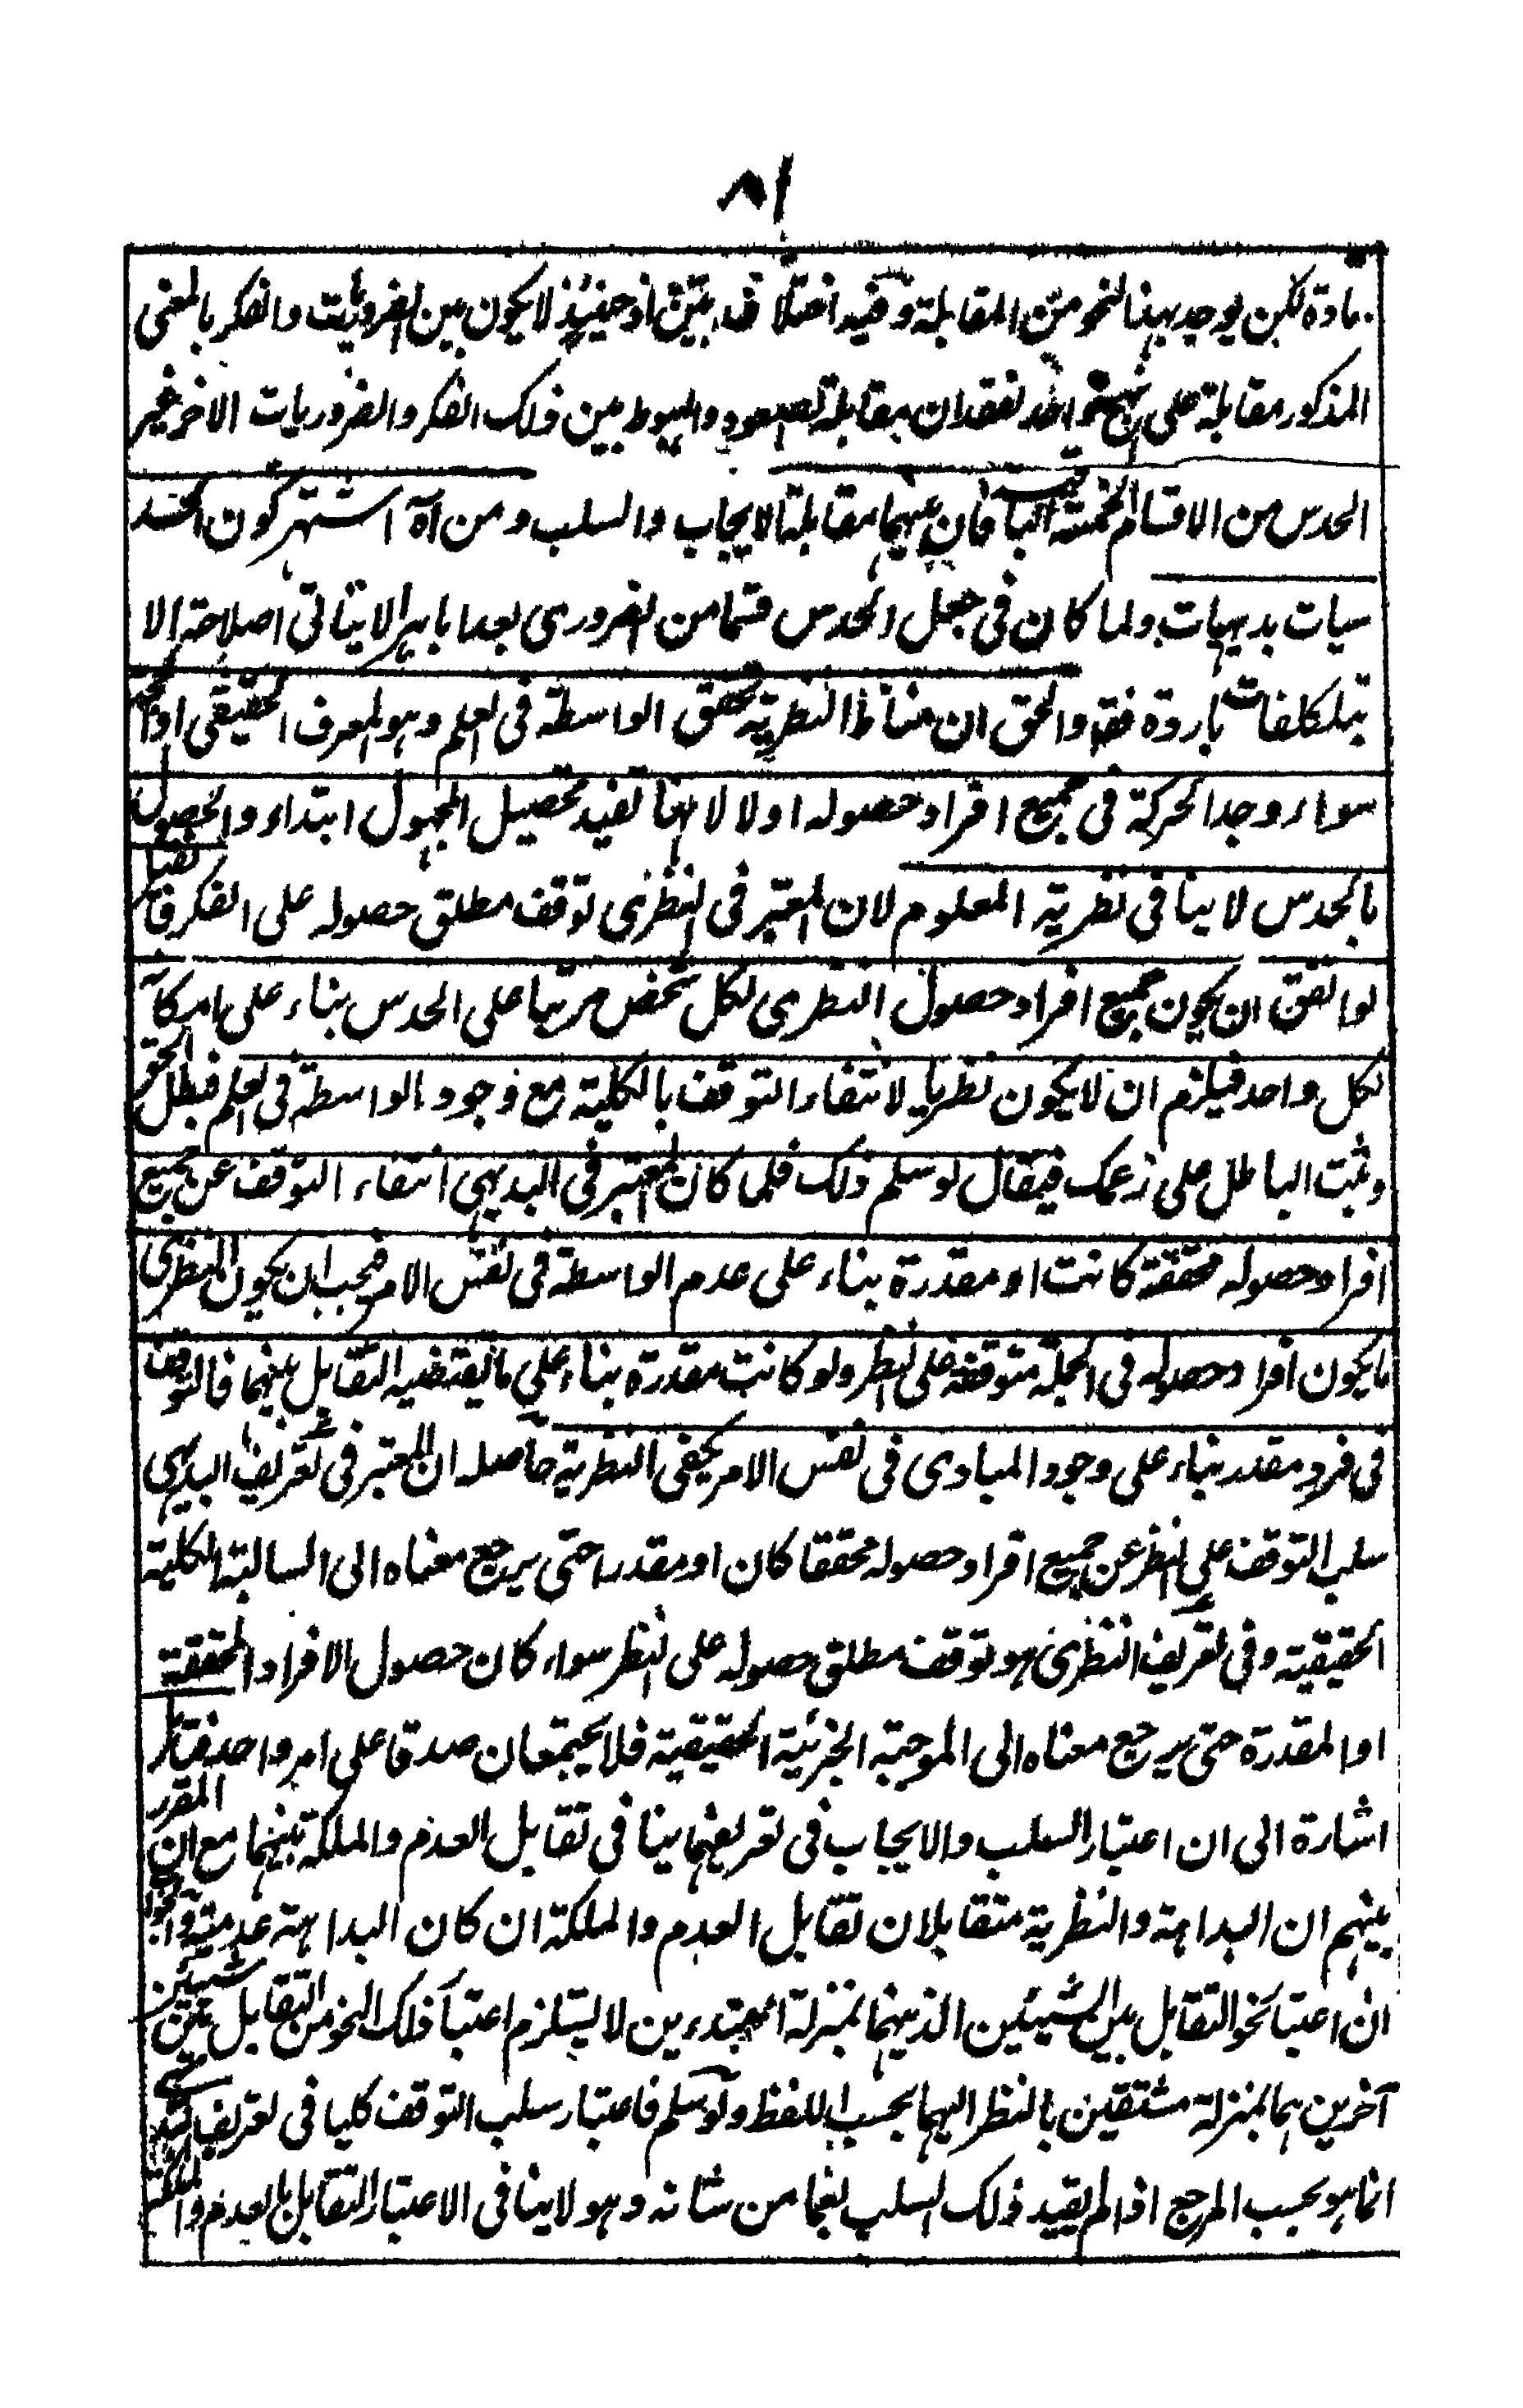 ٨١
مادة لكن يوجد بهذا النحو من المقابلة وفيه اختلاف بين اذ حينئذ لا يكون بين الضروريات والفكر بالمعنى
المذكور مقابلة على نهج واحد لفقدان مقابلة الصعود والهبوط بين ذلك الفكر والضروريات الاخر غير
الحدس من الاقسام الخمسة الباقية فان بينهما مقابلة الايجاب والسلب ومن آه اشتهر كون الحد
سيات بديهيات ولما كان في جعل الحدس قسما من الضروري بعدا باهرا لا يتاتى اصلاحه الا
بتكلفات باردة فقد والحق ان مناط النظرية تحقق الواسطة في العلم وهو المعرف الحقيقي او الحجة
سواء وجد الحركة في جميع افراد حصوله او لا لانها تفيد تحصيل المجهول ابتداء والحصول
بالحدس لا ينافي نظرية المعلوم لان المعتبر في النظري توقف مطلق حصوله على الفكر فا يقال
لو اتفق ان يكون جميع افراد حصول النظري لكل شخص مرتبا على الحدس بناء على امكانه
لكل واحد فيلزم ان لا يكون نظريا لانتفاء التوقف بالكلية مع وجود الواسطة في العلم فبطل الحق
وثبت الباطل على زعمك فيقال لو سلم ذلك فلما كان المعتبر في البديهي انتفاء التوقف عن جميع
افراد حصوله محققة كانت او مقدرة بناء على عدم الواسطة في نفس الامر فيجب ان يكون النظري
ما يكون افراد حصوله في الجملة متوقفة على النظر ولو كانت مقدرة بناء على ما يقتضيه التقابل بينهما فالتوقف
في فرد مقدر بناء على وجود المبادي في نفس الامر يكفي النظرية حاصله ان المعتبر في تعريف البديهي
سلب التوقف على النظر عن جميع افراد حصوله محققا كان او مقدرا حتى يرجع معناه الى السالبة الكلية
الحقيقية وفي تعريف النظري هو توقف مطلق حصوله على النظر سواء كان حصول الافراد المحققة
او المقدرة حتى يرجع معناه الى الموجبة الجزئية الحقيقية فلا يجتمعان صدقا على امر واحد فتامل
اشارة الى ان اعتبار السلب والايجاب في تعريفهما ينافي تقابل العدم والملكة بينهما مع ان المقرر
بينهم ان البداهة والنظرية متقابلان تقابل العدم والملكة ان كان البداهة عدمية والجواب
ان اعتبار نحو التقابل بين الشيئين الذين هما بمنزلة المبتدءين لا يستلزم اعتبار ذلك النحو من التقابل بين شيئين
آخرين هما بمنزلة مشتقين بالنظر اليهما بحسب اللفظ ولو سلم فاعتبار سلب التوقف كليا في تعريف
انما هو بحسب المرجع اذا لم يقيد ذلك السلب بغما من شانه وهو لا ينافي الاعتبار التقابل بالعدم والملكة